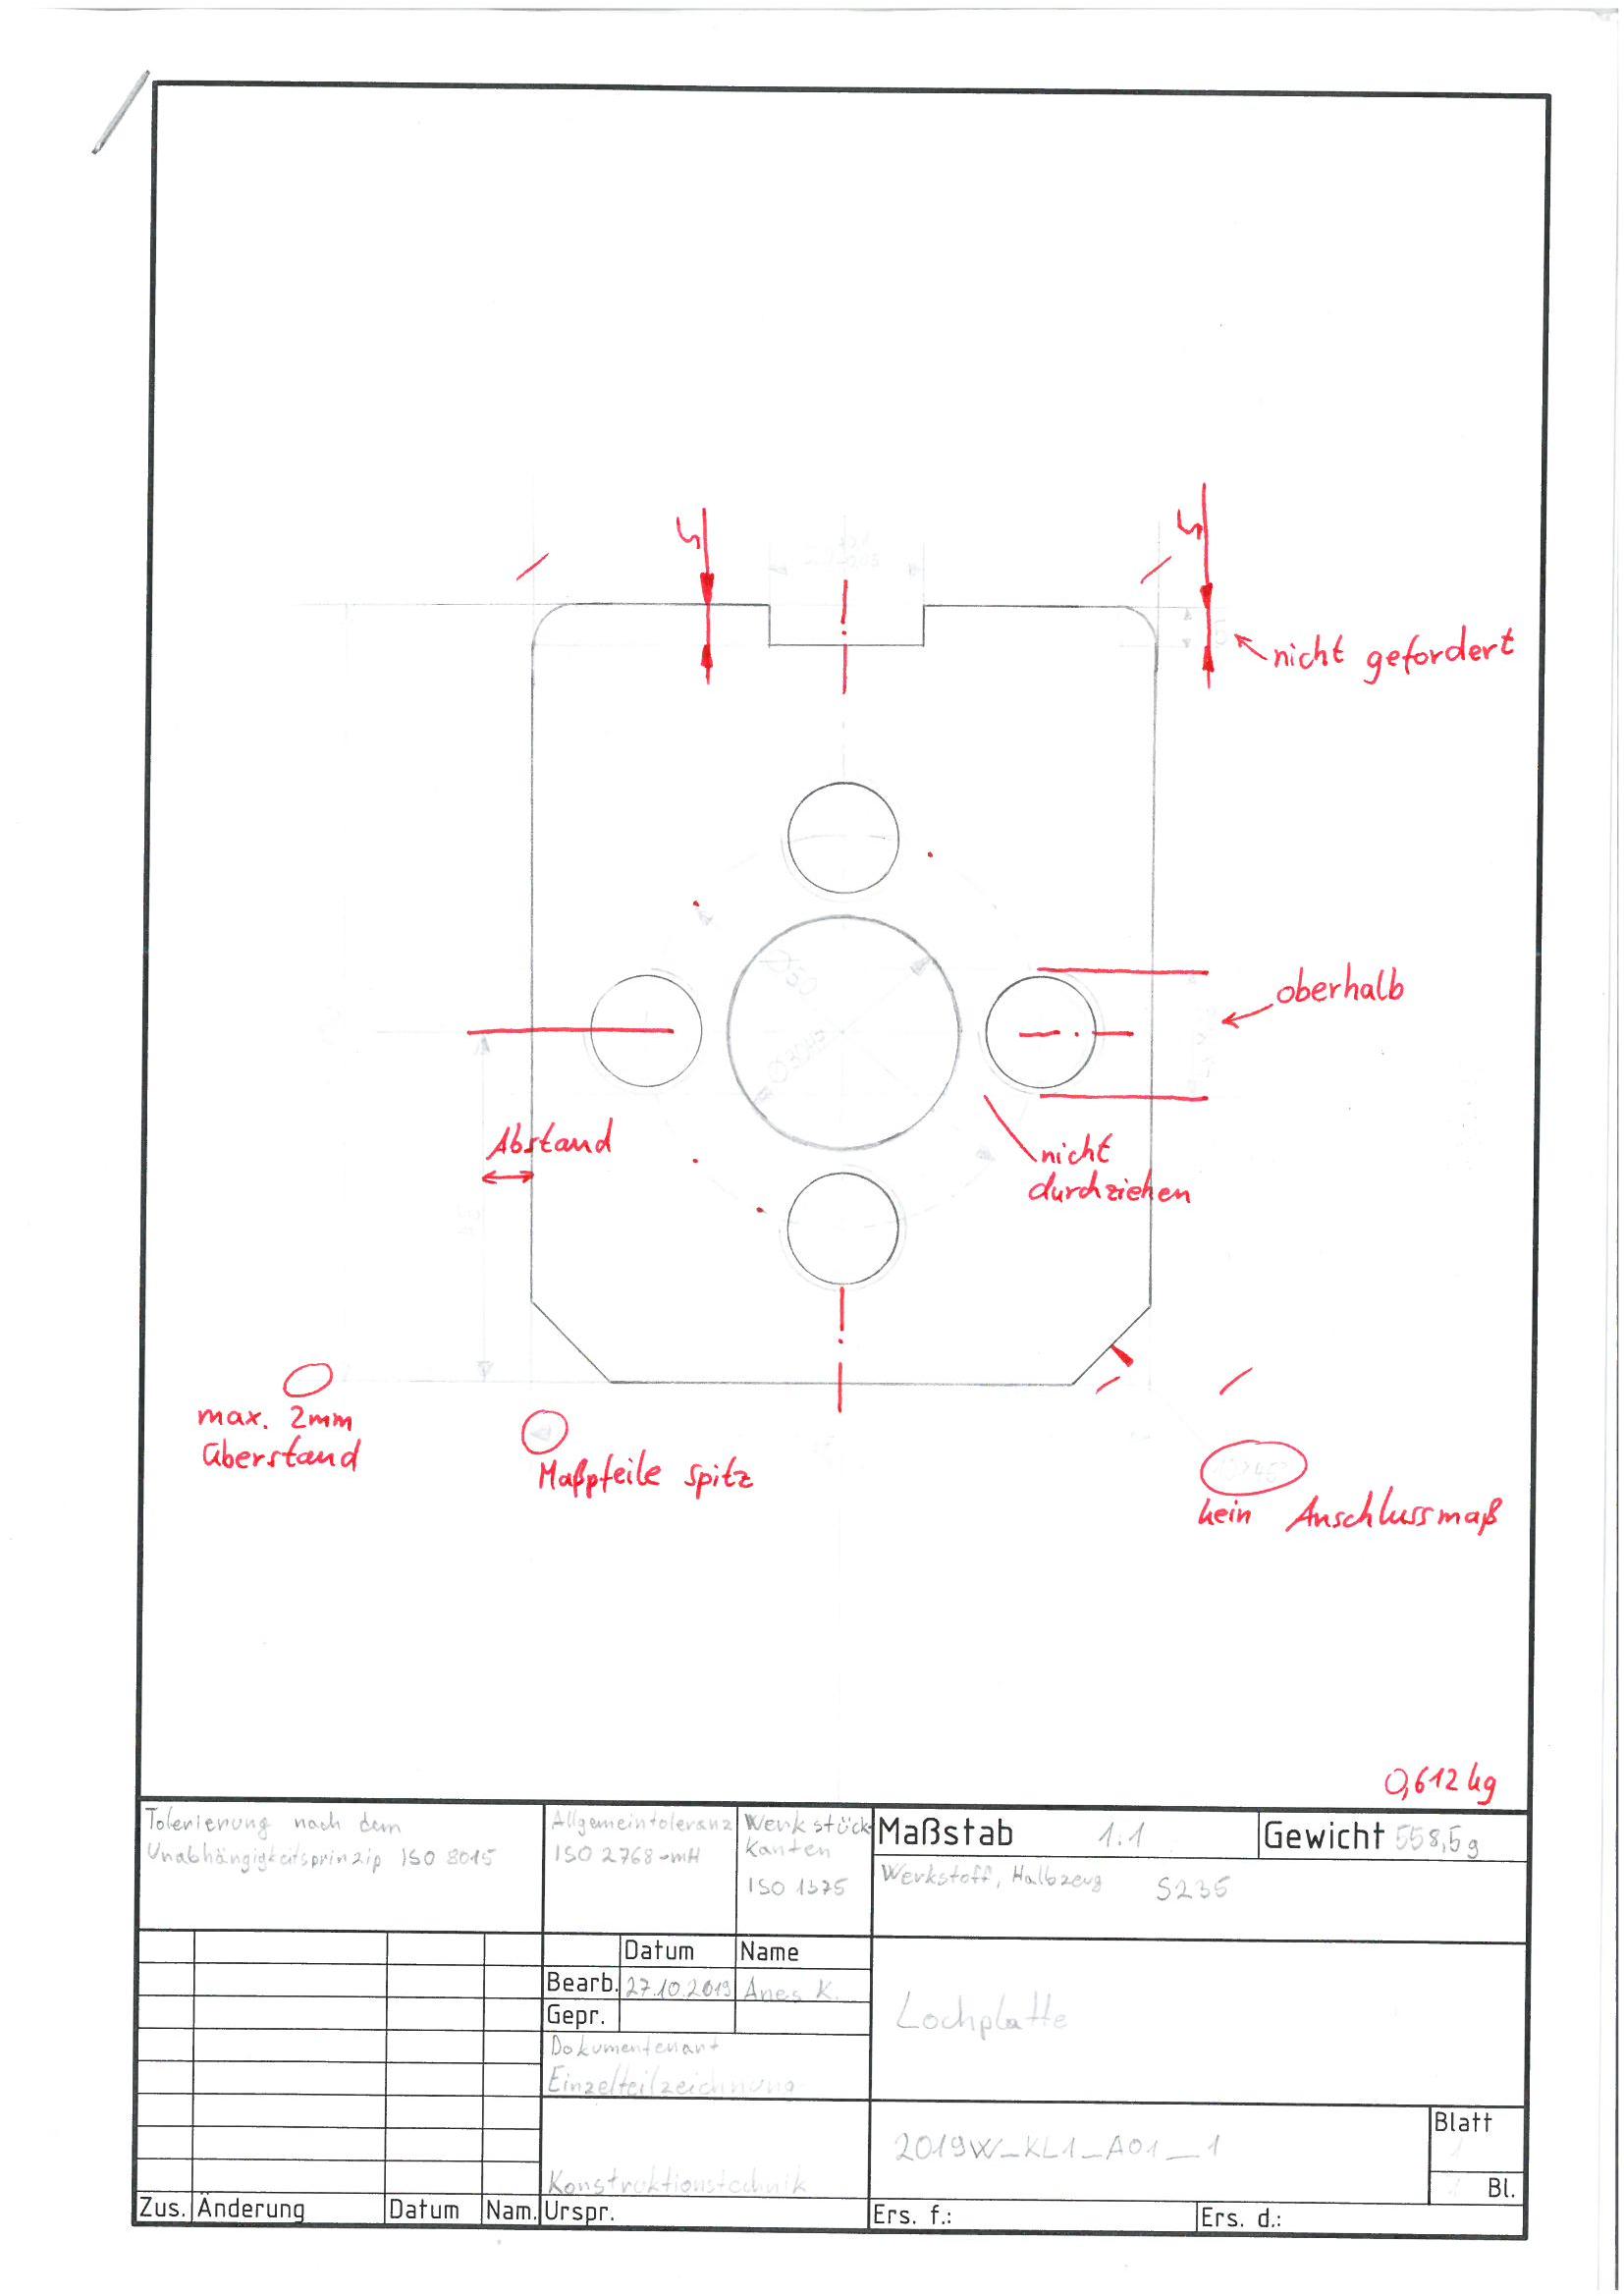 5
5
nicht gefordert
Ø60
oberhalb
Abstand
nicht
durchziehen
max. 2mm
überstand
Maßpfeile spitz
kein Anschlussmaß
0,612 kg
Tolerierung nach dem
Unabhängigkeitsprinzip ISO 8015
Allgemeintoleranz
ISO 2768-mH
Werkstück
kanten
ISO 1375
Maßstab 1:1
Gewicht 558,5g
Werkstoff, Halbzeug S235
Datum Name
Bearb. 27.10.2019 Anes K.
Gepr.
Dokumentenart
Einzelteilzeichnung
Lochplatte
Konstruktionstechnik
2019W_KL1_A01_1
Blatt
1
1 Bl.
Zus. Änderung Datum Nam. Urspr. Ers. f.: Ers. d.: